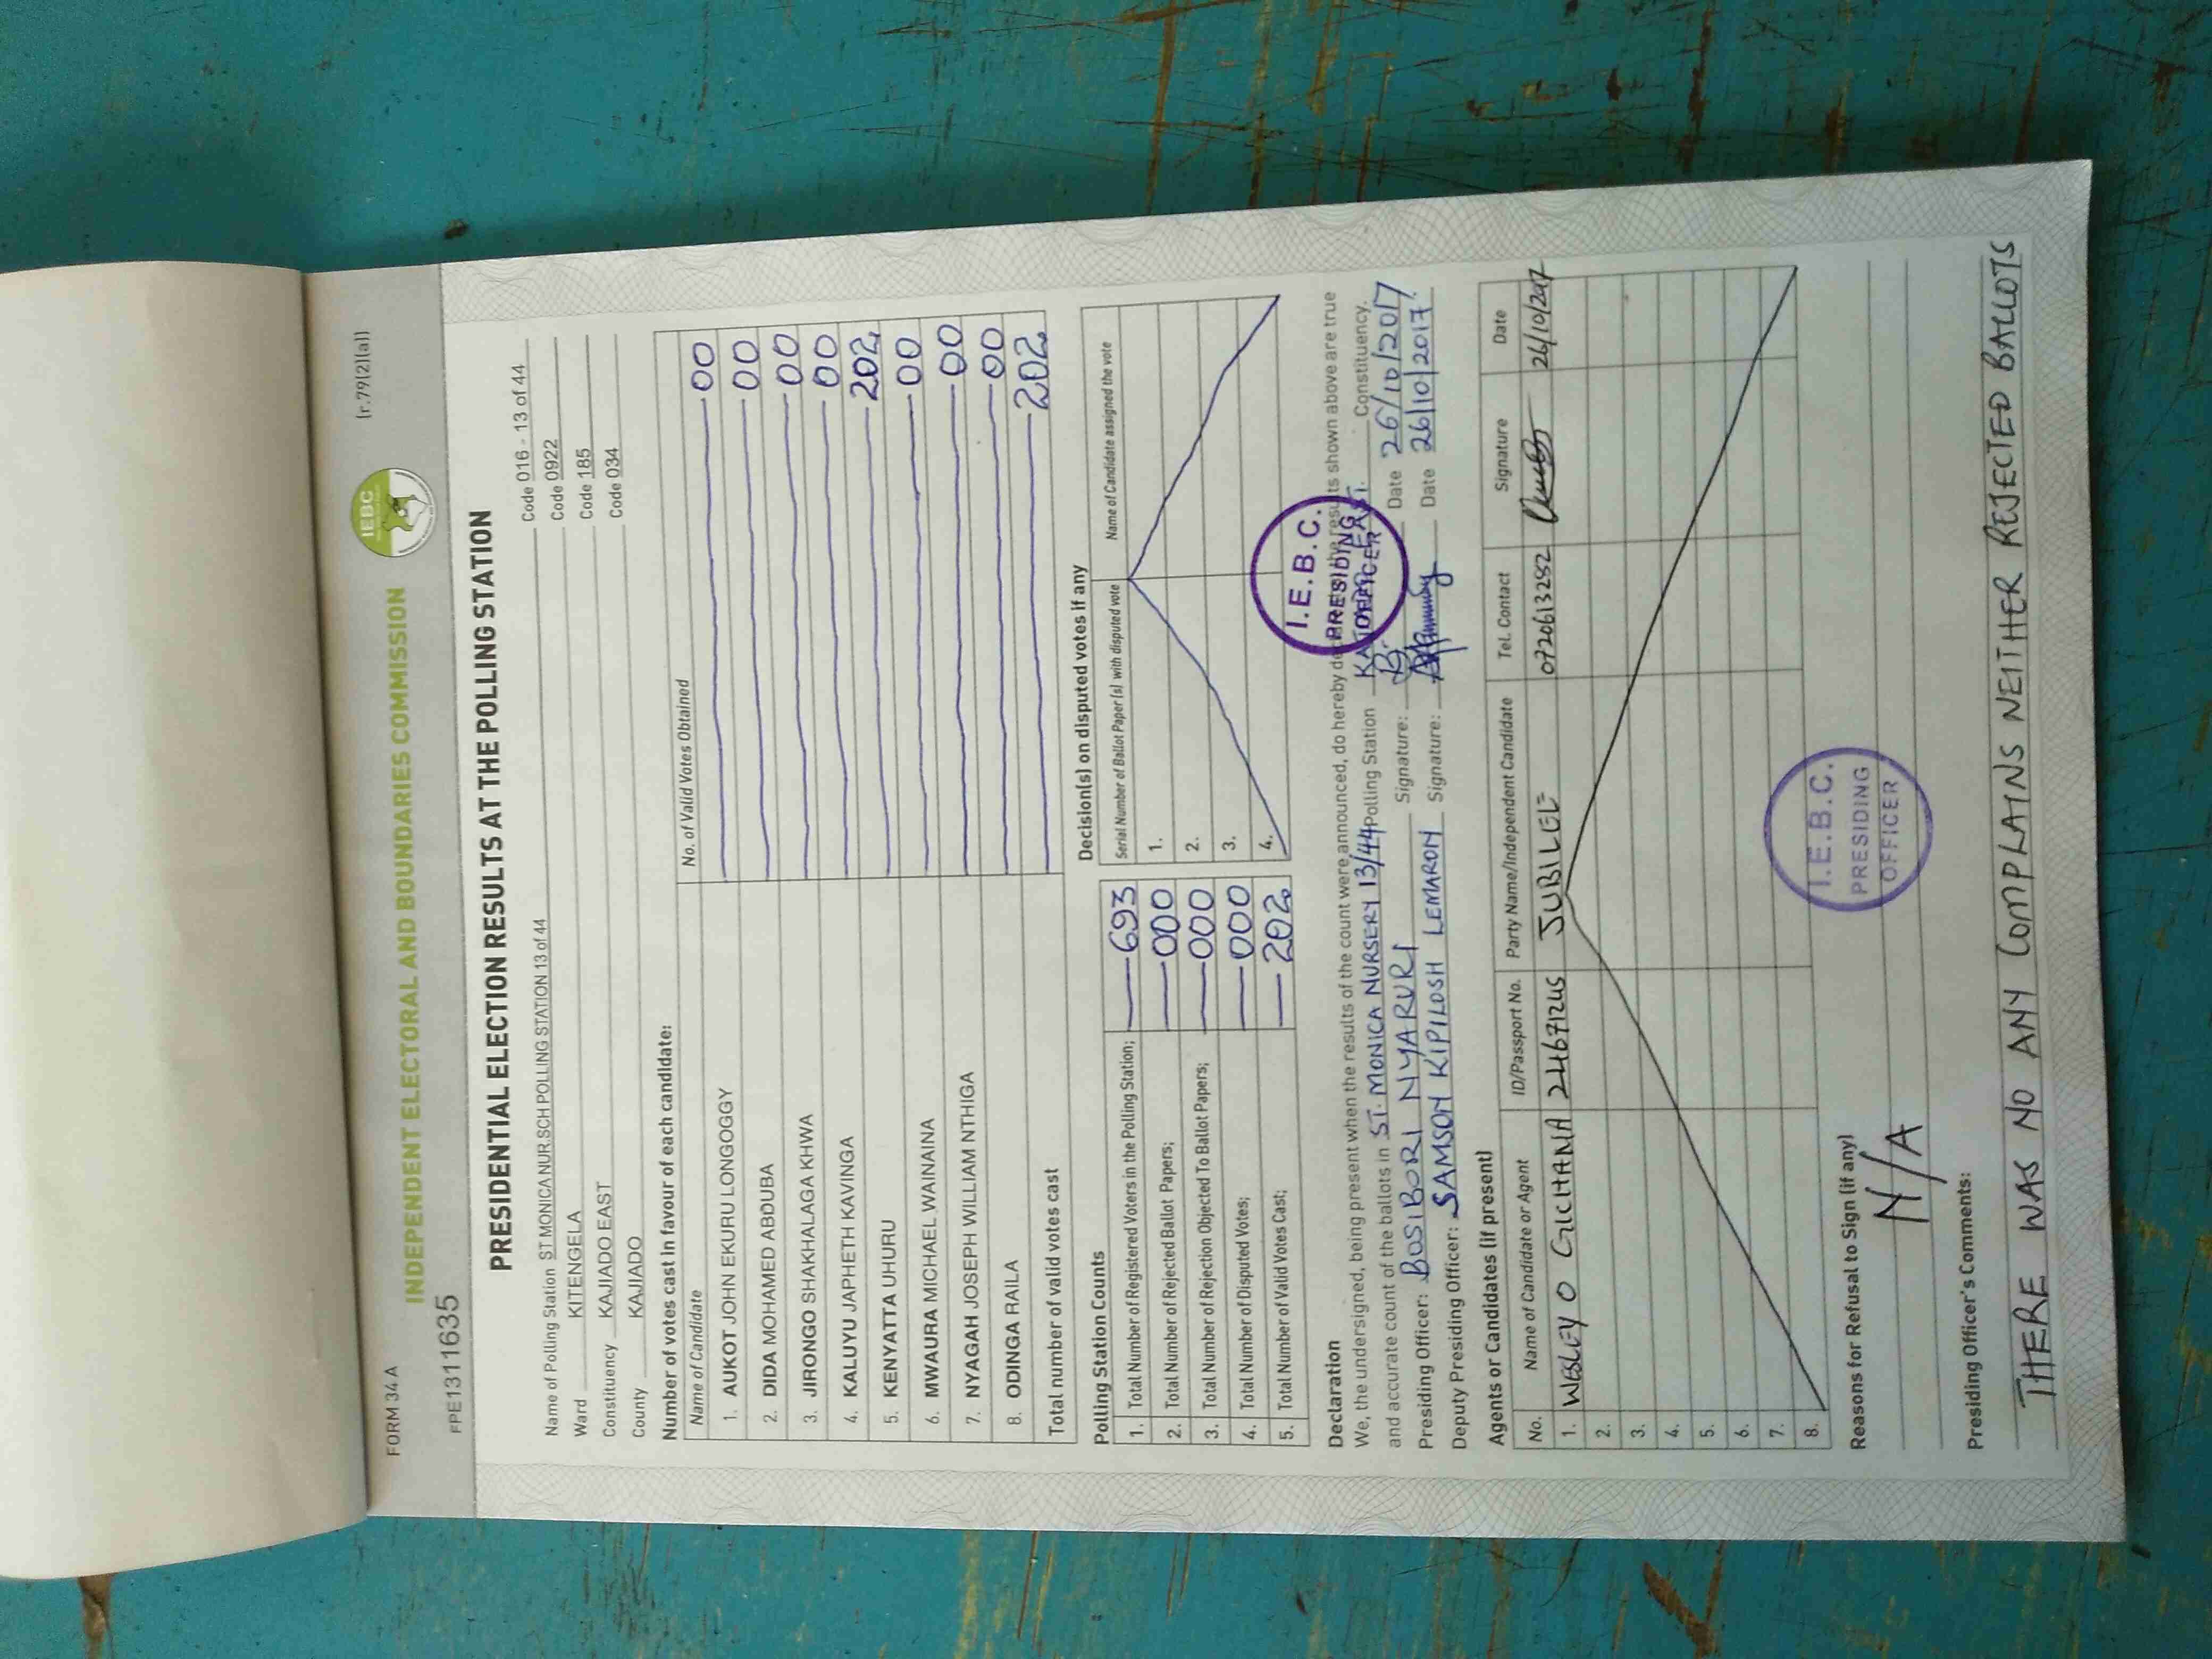 FORM 34 A
(r.79(2)(a))
FPE1311635
INDEPENDENT ELECTORAL AND BOUNDARIES COMMISSION
IEBC
PRESIDENTIAL ELECTION RESULTS AT THE POLLING STATION
Name of Polling Station ST MONICA NUR.SCH POLLING STATION 13 of 44 Code 016 - 13 of 44
Ward KITENGELA Code 0922
Constituency KAJIADO EAST Code 185
County KAJIADO Code 034
Number of votes cast in favour of each candidate:
Name of Candidate No. of Valid Votes Obtained
1. AUKOT JOHN EKURU LONGOGGY 00
2. DIDA MOHAMED ABDUBA 00
3. JIRONGO SHAKHALAGA KHWA 00
4. KALUYU JAPHETH KAVINGA 00
5. KENYATTA UHURU 202
6. MWAURA MICHAEL WAINAINA 00
7. NYAGAH JOSEPH WILLIAM NTHIGA 00
8. ODINGA RAILA 00
Total number of valid votes cast 202
Polling Station Counts
1. Total Number of Registered Voters in the Polling Station; 693
2. Total Number of Rejected Ballot Papers; 000
3. Total Number of Rejection Objected To Ballot Papers; 000
4. Total Number of Disputed Votes; 000
5. Total Number of Valid Votes Cast; 202
Decision(s) on disputed votes if any
Serial Number of Ballot Paper (s) with disputed vote Name of Candidate assigned the vote
1.
2.
3.
4.
Declaration
We, the undersigned, being present when the results of the count were announced, do hereby declare that the results shown above are true
and accurate count of the ballots in ST. MONICA NURSERY 13/44 Polling Station Constituency.
Presiding Officer: BOSIBORI NYARURI Signature: Date 26/10/2017
Deputy Presiding Officer: SAMSON KIPILOSH LEMARON Signature: Date 26/10/2017
I.E.B.C.
PRESIDING
OFFICER
Agents or Candidates (if present)
No. Name of Candidate or Agent ID/Passport No. Party Name/Independent Candidate Tel. Contact Signature Date
1. WESLEY O GICHANA JUBILEE 0720613282 26/10/2017
2.
3.
4.
5.
6.
7.
8.
I.E.B.C.
PRESIDING
OFFICER
Reasons for Refusal to Sign (if any)
N/A
Presiding Officer's Comments:
THERE WAS NO ANY COMPLAINS NEITHER REJECTED BALLOTS